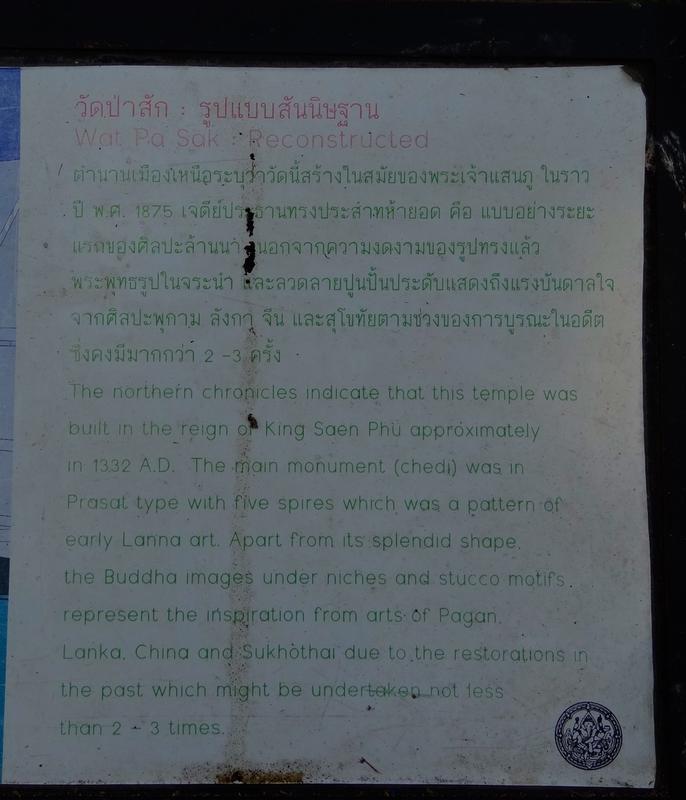 วัดป่าสัก : รูปแบบสันนิษฐาน
Wat Pa Sak : Reconstructed
ตำนานเมืองเหนือระบุว่าวัดนี้สร้างในสมัยของพระเจ้าแสนภู ในราว
ปี พ.ศ. 1875 เจดีย์ประธานทรงประสาทห้ายอด คือ แบบอย่างระยะ
แรกของศิลปะล้านนา นอกจากความงดงามของรูปทรงแล้ว
พระพุทธรูปในจระนำ และลวดลายปูนปั้นประดับแสดงถึงแรงบันดาลใจ
จากศิลปะพุกาม ลังกา จีน และสุโขทัยตามช่วงของการบูรณะในอดีต
ซึ่งคงมีมากกว่า 2 -3 ครั้ง
The northern chronicles indicate that this temple was
built in the reign of King Saen Phu approximately
in 1332 A.D. The main monument (chedi) was in
Prasat type with five spires which was a pattern of
early Lanna art. Apart from its splendid shape,
the Buddha images under niches and stucco motifs
represent the inspiration from arts of Pagan,
Lanka, China and Sukhothai due to the restorations in
the past which might be undertaken not less
than 2 - 3 times.